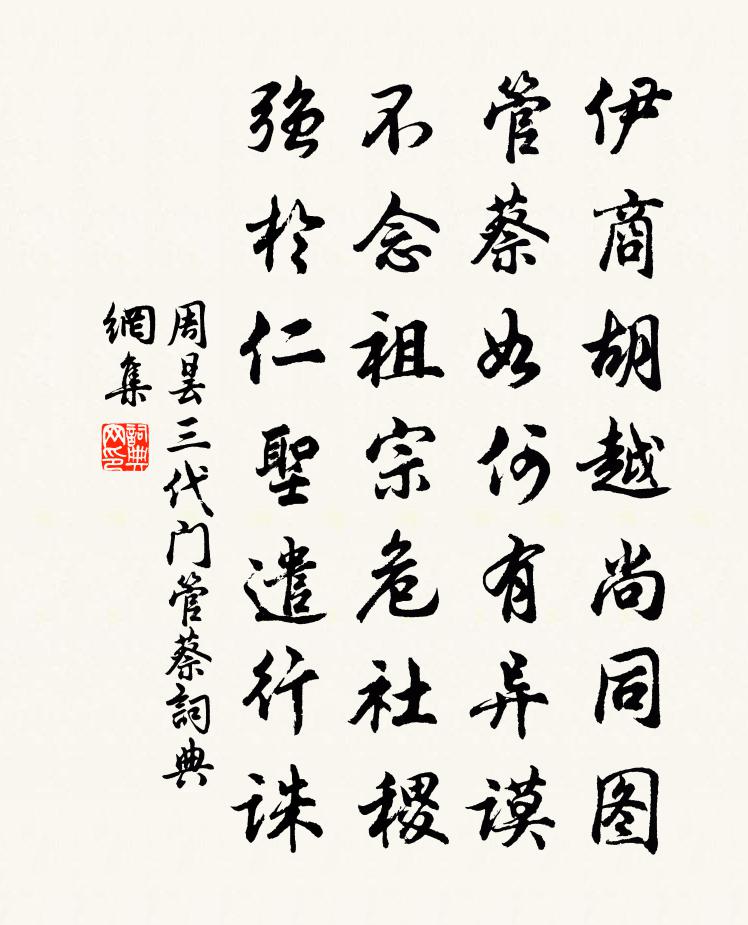 伊商胡越尚同图
管蔡如何有异谟
不念祖宗危社稷
强於仁聖遣行诛
周昙三代门管蔡詞典
網集
詞典网印